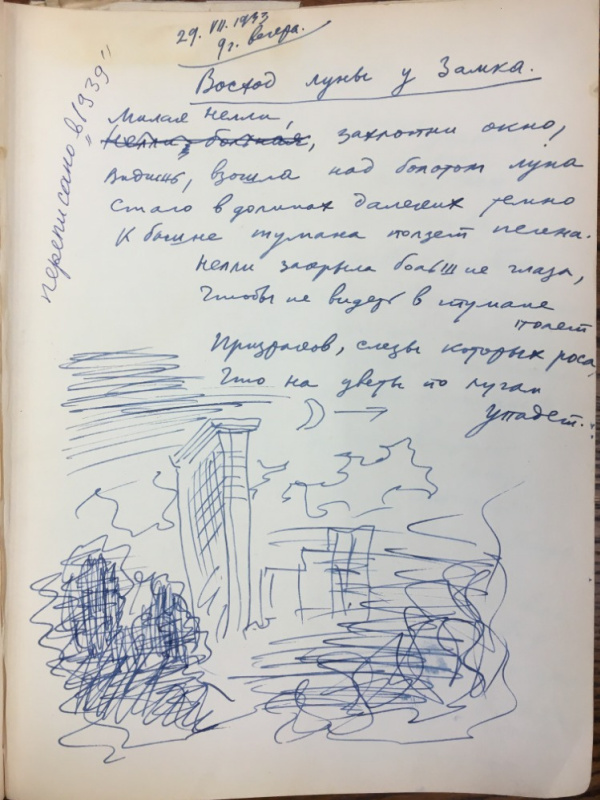 29. VII. 1933
9 г. вечера.
Восход луны у Замка.
переписано в "1939"
Милая Нелли,
Нелли, больная, захлопни окно,
Видишь, взошла над болотом луна
Стало в долинах далеких темно
К башне тумана ползет пелена.
Нелли закрыла большие глаза,
Чтобы не видеть в тумане
полет
Призраков, слезы которых роса,
Что на цветы по лугам
упадет.